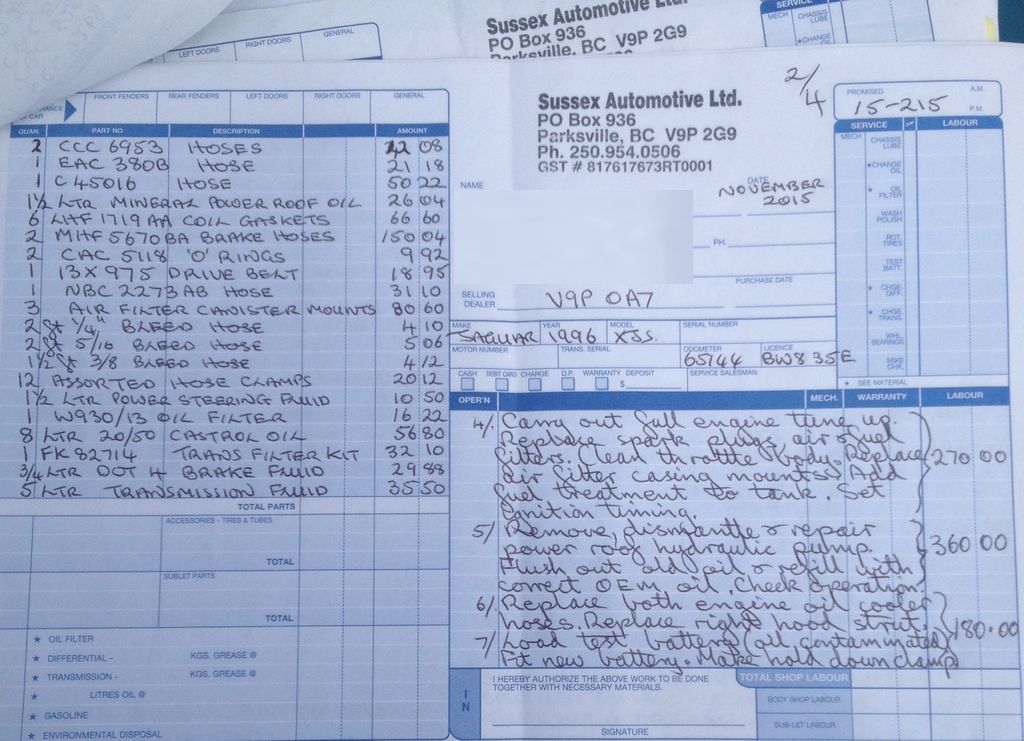 Sussex Automotive Ltd.
PO Box 936
Parksville, BC V9P 2G9
LEFT DOORS RIGHT DOORS GENERAL
SERVICE
MECH CHASSIS LUBE
★CHANGE OIL
FRONT FENDERS REAR FENDERS LEFT DOORS RIGHT DOORS GENERAL
OF CAR
QUAN. PART NO. DESCRIPTION AMOUNT
2 CCC 6953 HOSES 42 08
1 EAC 380B HOSE 21 18
1 C 45016 HOSE 50 22
1½ LTR MINERAL POWER ROOF OIL 26 04
6 LHF 1719 AA COIL GASKETS 66 60
2 MHF 5670 BA BRAKE HOSES 150 04
2 CAC 5118 'O' RINGS 9 92
1 13 X 975 DRIVE BELT 18 95
1 NBC 2273 AB HOSE 31 10
3 AIR FILTER CANISTER MOUNTS 80 60
2 ft 1/4" BLEED HOSE 4 10
2 ft 5/16 BLEED HOSE 5 06
1½ ft 3/8 BLEED HOSE 4 12
12 ASSORTED HOSE CLAMPS 20 12
1½ LTR POWER STEERING FLUID 10 50
1 W930/13 OIL FILTER 16 22
8 LTR 20/50 CASTROL OIL 56 80
1 FK 82714 TRANS FILTER KIT 32 10
3/4 LTR DOT 4 BRAKE FLUID 29 88
5 LTR TRANSMISSION FLUID 35 50
TOTAL PARTS
ACCESSORIES - TIRES & TUBES
TOTAL
SUBLET PARTS
TOTAL
★ OIL FILTER
★ DIFFERENTIAL - KGS. GREASE @
★ TRANSMISSION - KGS. GREASE @
★ LITRES OIL @
★ GASOLINE
★ ENVIRONMENTAL DISPOSAL
Sussex Automotive Ltd.
PO Box 936
Parksville, BC V9P 2G9
Ph. 250.954.0506
GST # 817617673RT0001
2/4
PROMISED A.M.
15-215 P.M.
NAME
DATE
NOVEMBER
2015
PH.
PURCHASE DATE
SELLING DEALER V9P 0A7
MAKE YEAR MODEL SERIAL NUMBER
JAGUAR 1996 XJS.
MOTOR NUMBER TRANS. SERIAL ODOMETER LICENCE
65144 BW8 35E
CASH DEBIT CARD CHARGE D.P. WARRANTY DEPOSIT SERVICE SALESMAN
$
SERVICE LABOUR
MECH CHASSIS LUBE
★CHANGE OIL
★ OIL FILTER
WASH POLISH
ROT. TIRES
TEST BATT.
★ CHGE DIFF.
★ CHGE TRANS.
WHL BEARINGS
MIKE CHK.
★ SEE MATERIAL
OPER'N MECH. WARRANTY LABOUR
4/. Carry out full engine tune up.
Replace spark plugs, air & fuel
filters. Clean throttle body. Replace 270 00
air filter casing mounts. Add
fuel treatment to tank. Set
ignition timing.
5/ Remove, dismantle & repair
power roof hydraulic pump. 360 00
Flush out old oil & refill with
correct OEM oil. Check operation.
6/ Replace both engine oil cooler
hoses. Replace right hood strut. 180.00
7/ Load test battery (oil contaminated)
Fit new battery. Make hold down clamp
IN
I HEREBY AUTHORIZE THE ABOVE WORK TO BE DONE
TOGETHER WITH NECESSARY MATERIALS.
SIGNATURE
TOTAL SHOP LABOUR
BODY SHOP LABOUR
SUB-LET LABOUR